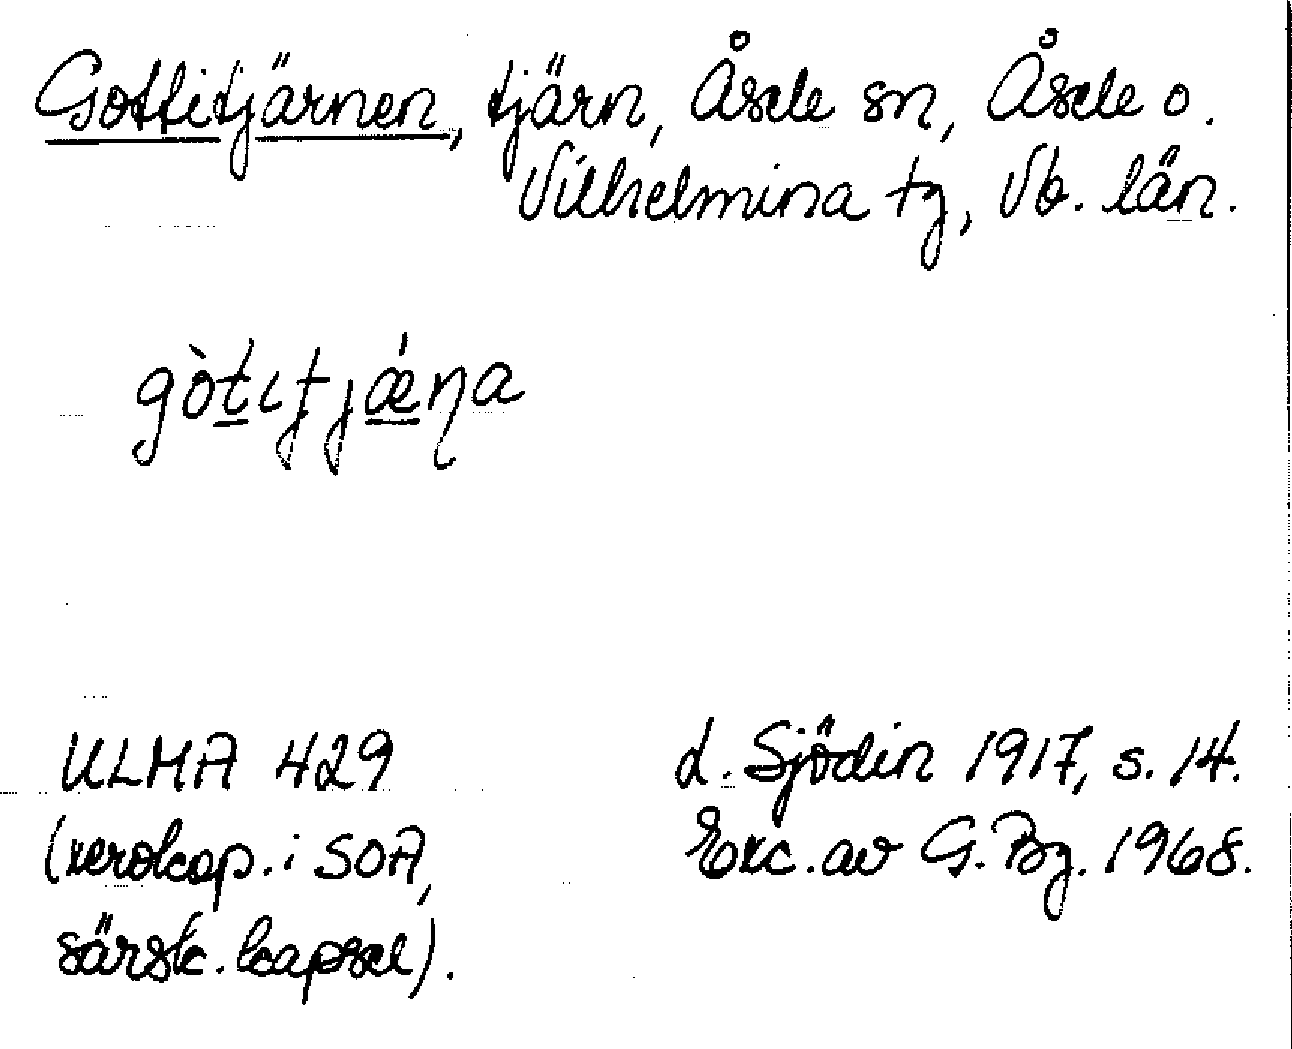 Gottitjärnen, tjärn, Åsele sn, Åsele o.
Vilhelmina tg, Vb. län.
gòt̲ıtȷǽ̲ŋa
ULMA 429
(xerokop. i SOA,
särsk. kapsel).
L. Sjödin 1917, s. 14.
Exc. av G. Bg. 1968.